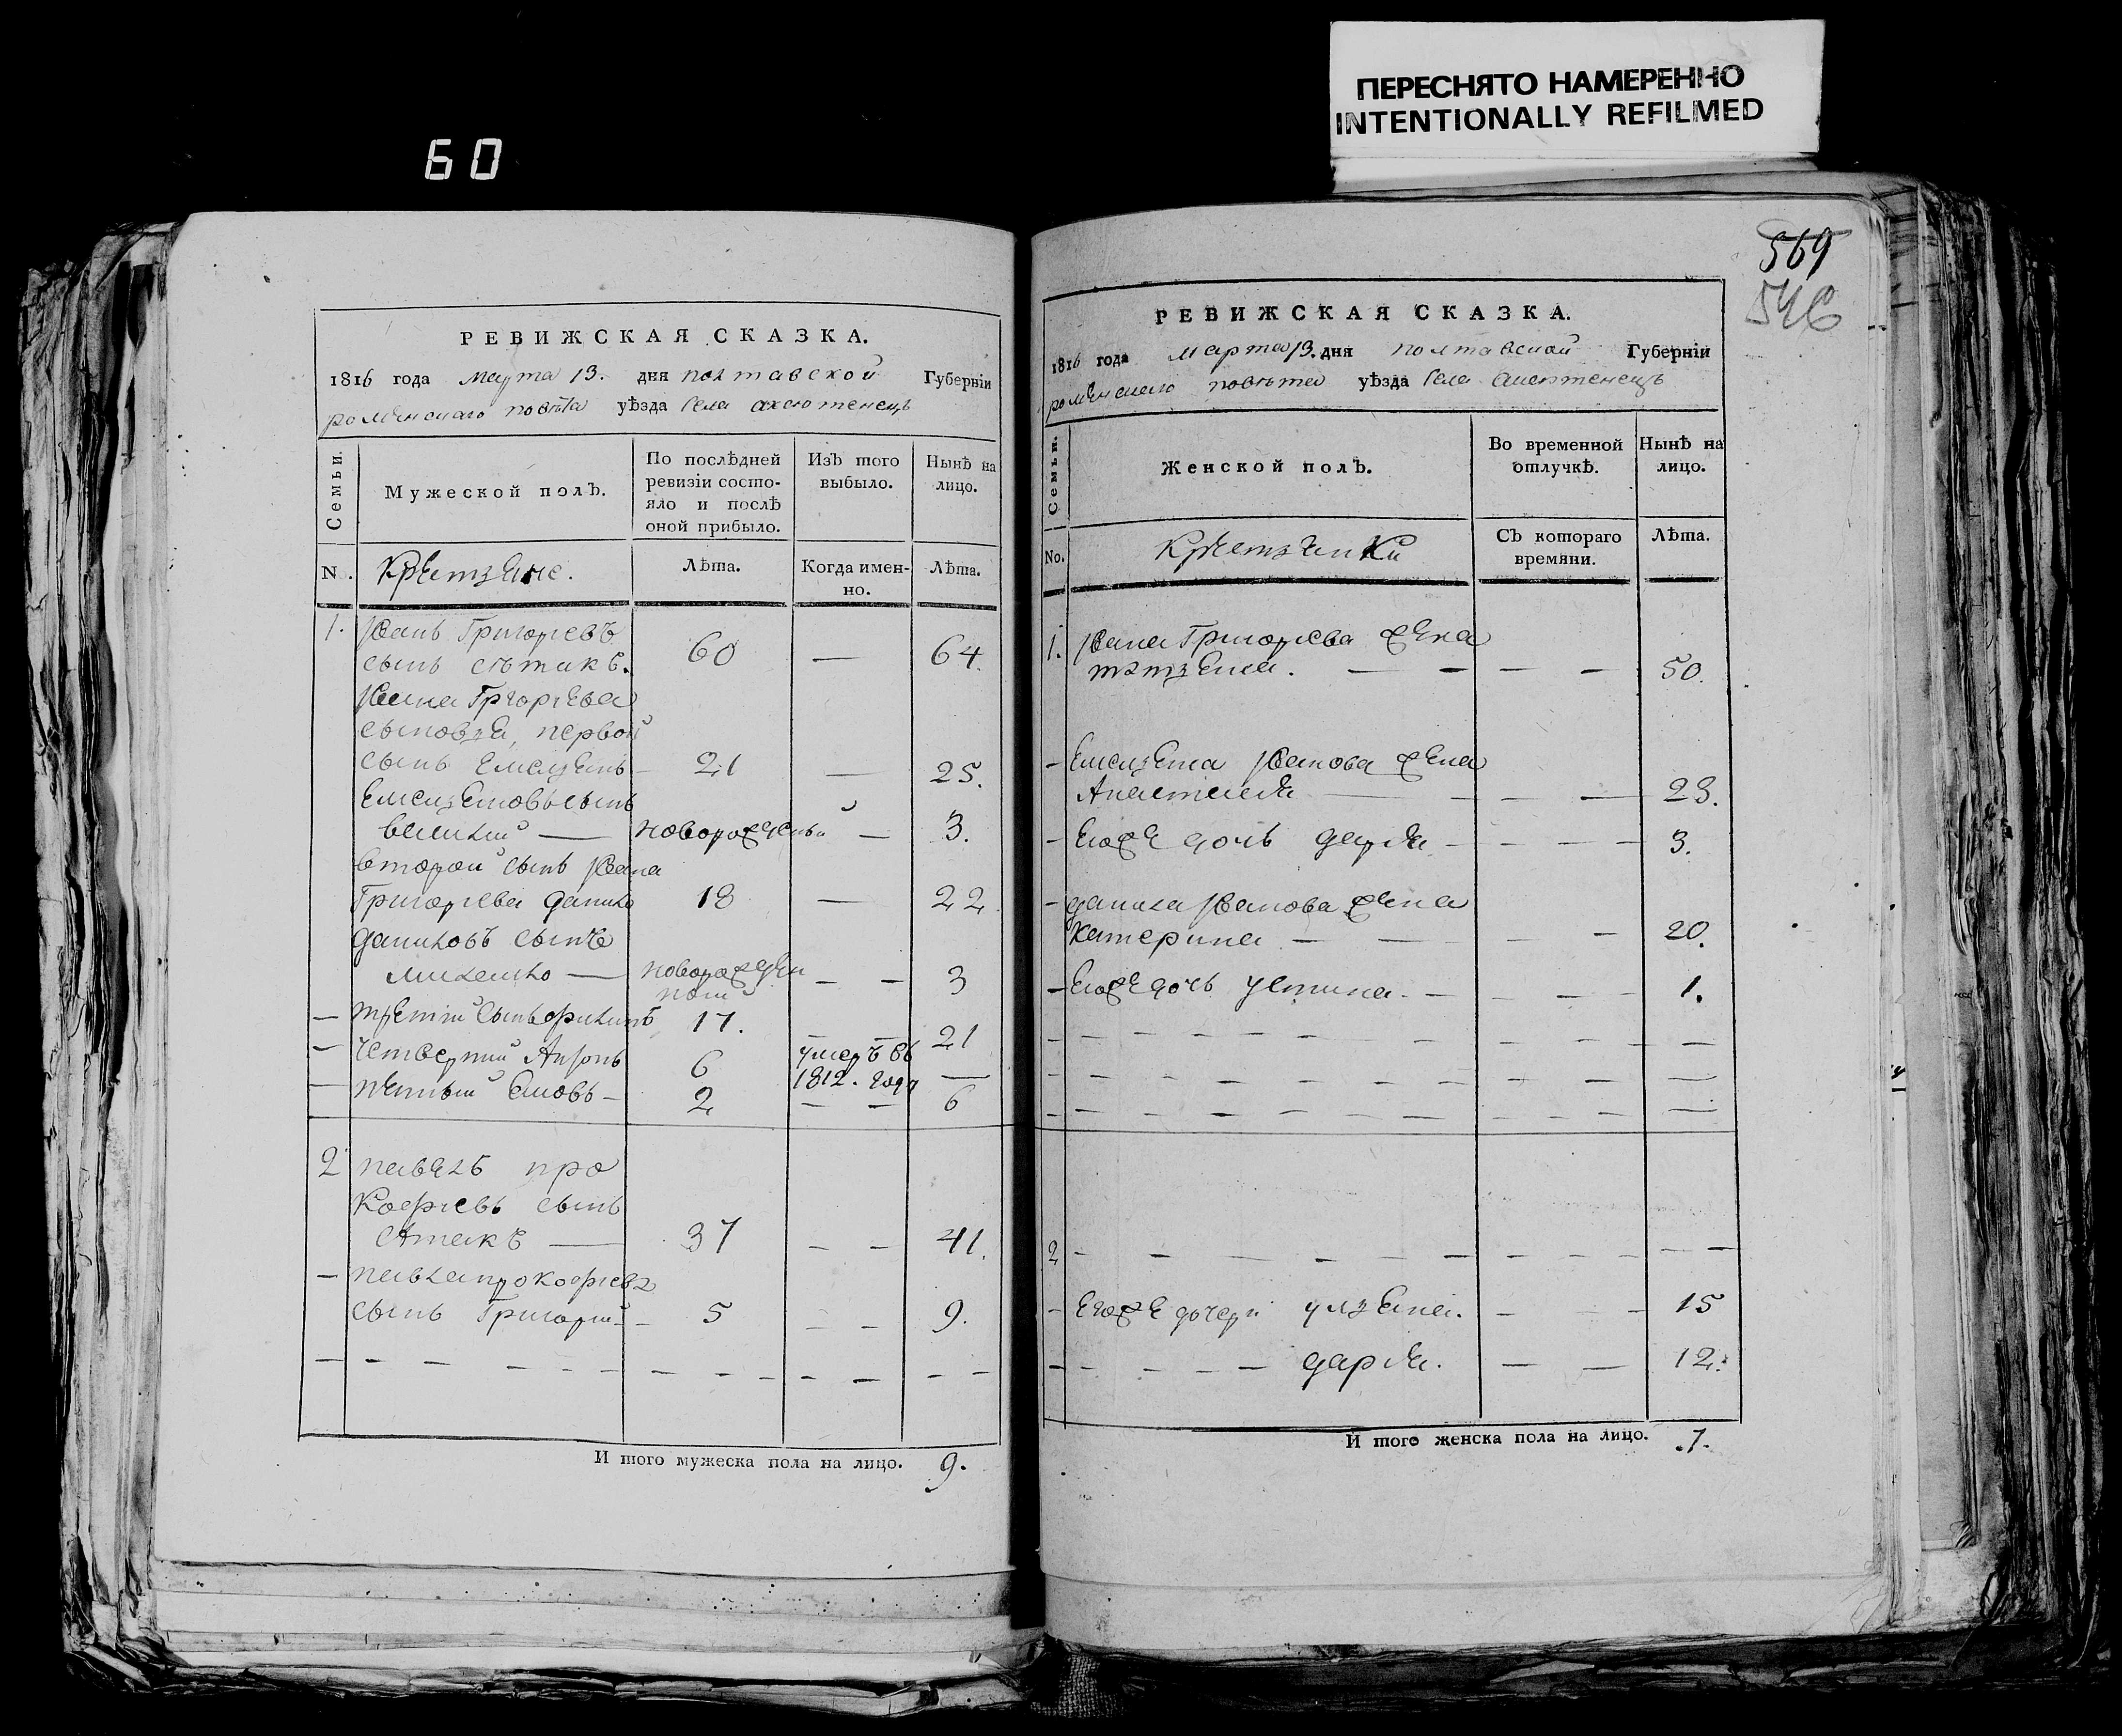 ПЕРЕСНЯТО НАМЕРЕННО
INTENTIONALLY REFILMED
60
569
546
РЕВИЖСКАЯ СКАЗКА.
1816 года марта 13. дня полтавской Губернїи
роменскаго повѣта уѣзда села аксютенецъ
Семьи.
Мужеской полъ.
По послѣдней ревизїи состо-
яло и послѣ
оной прибыло.
Изъ того
выбыло.
Нынѣ на
лицо.
N.
Крестяне.
Лѣта.
Когда имен-
но.
Лѣта.
1. Иванъ Григорьевъ
сынъ 60 — 64.
Ивана Григорьева
сыновя, первой
сынъ Емелянъ — 21 — 25.
Емеляновъ сынъ
новорожденый — 3.
второй сынъ Ивана
Григорьева данило 18 — 22
даниловъ сынъ
михайло — новорожден
ной — — 3
— третий сынъ филипъ 17. — — 21
— четвертий Антонъ 6 умеръ въ
1812. году —
— пятый — 2 — — 6
2 павелъ про
кофиевъ сынъ
— 37 — — 41.
— павла прокофиева
сынъ Григорий — 5 — — 9.
И того мужеска пола на лицо. 9.
РЕВИЖСКАЯ СКАЗКА.
1816 года марта 13. дня полтавской Губернїи
роменскаго повѣта уѣзда села аксютенецъ
Семьи.
Женской полъ.
Во временной
отлучкѣ.
Нынѣ на
лицо.
No.
Крестянки
Съ котораго
времяни.
Лѣта.
1. Ивана Григорьева жена
татяна. — — — — 50.
— Емеляна Иванова жена
Анастасия — — — — 23.
— Егоже дочь дария — — — — 3.
— данила Иванова жена
катерина — — — — 20.
— Егоже дочь устина. — — — — 1.
2 — — — — — — — — — — —
— егоже дочери уляна. — — 15
— — — — — дария. — — 12.
И того женска пола на лицо. .7.